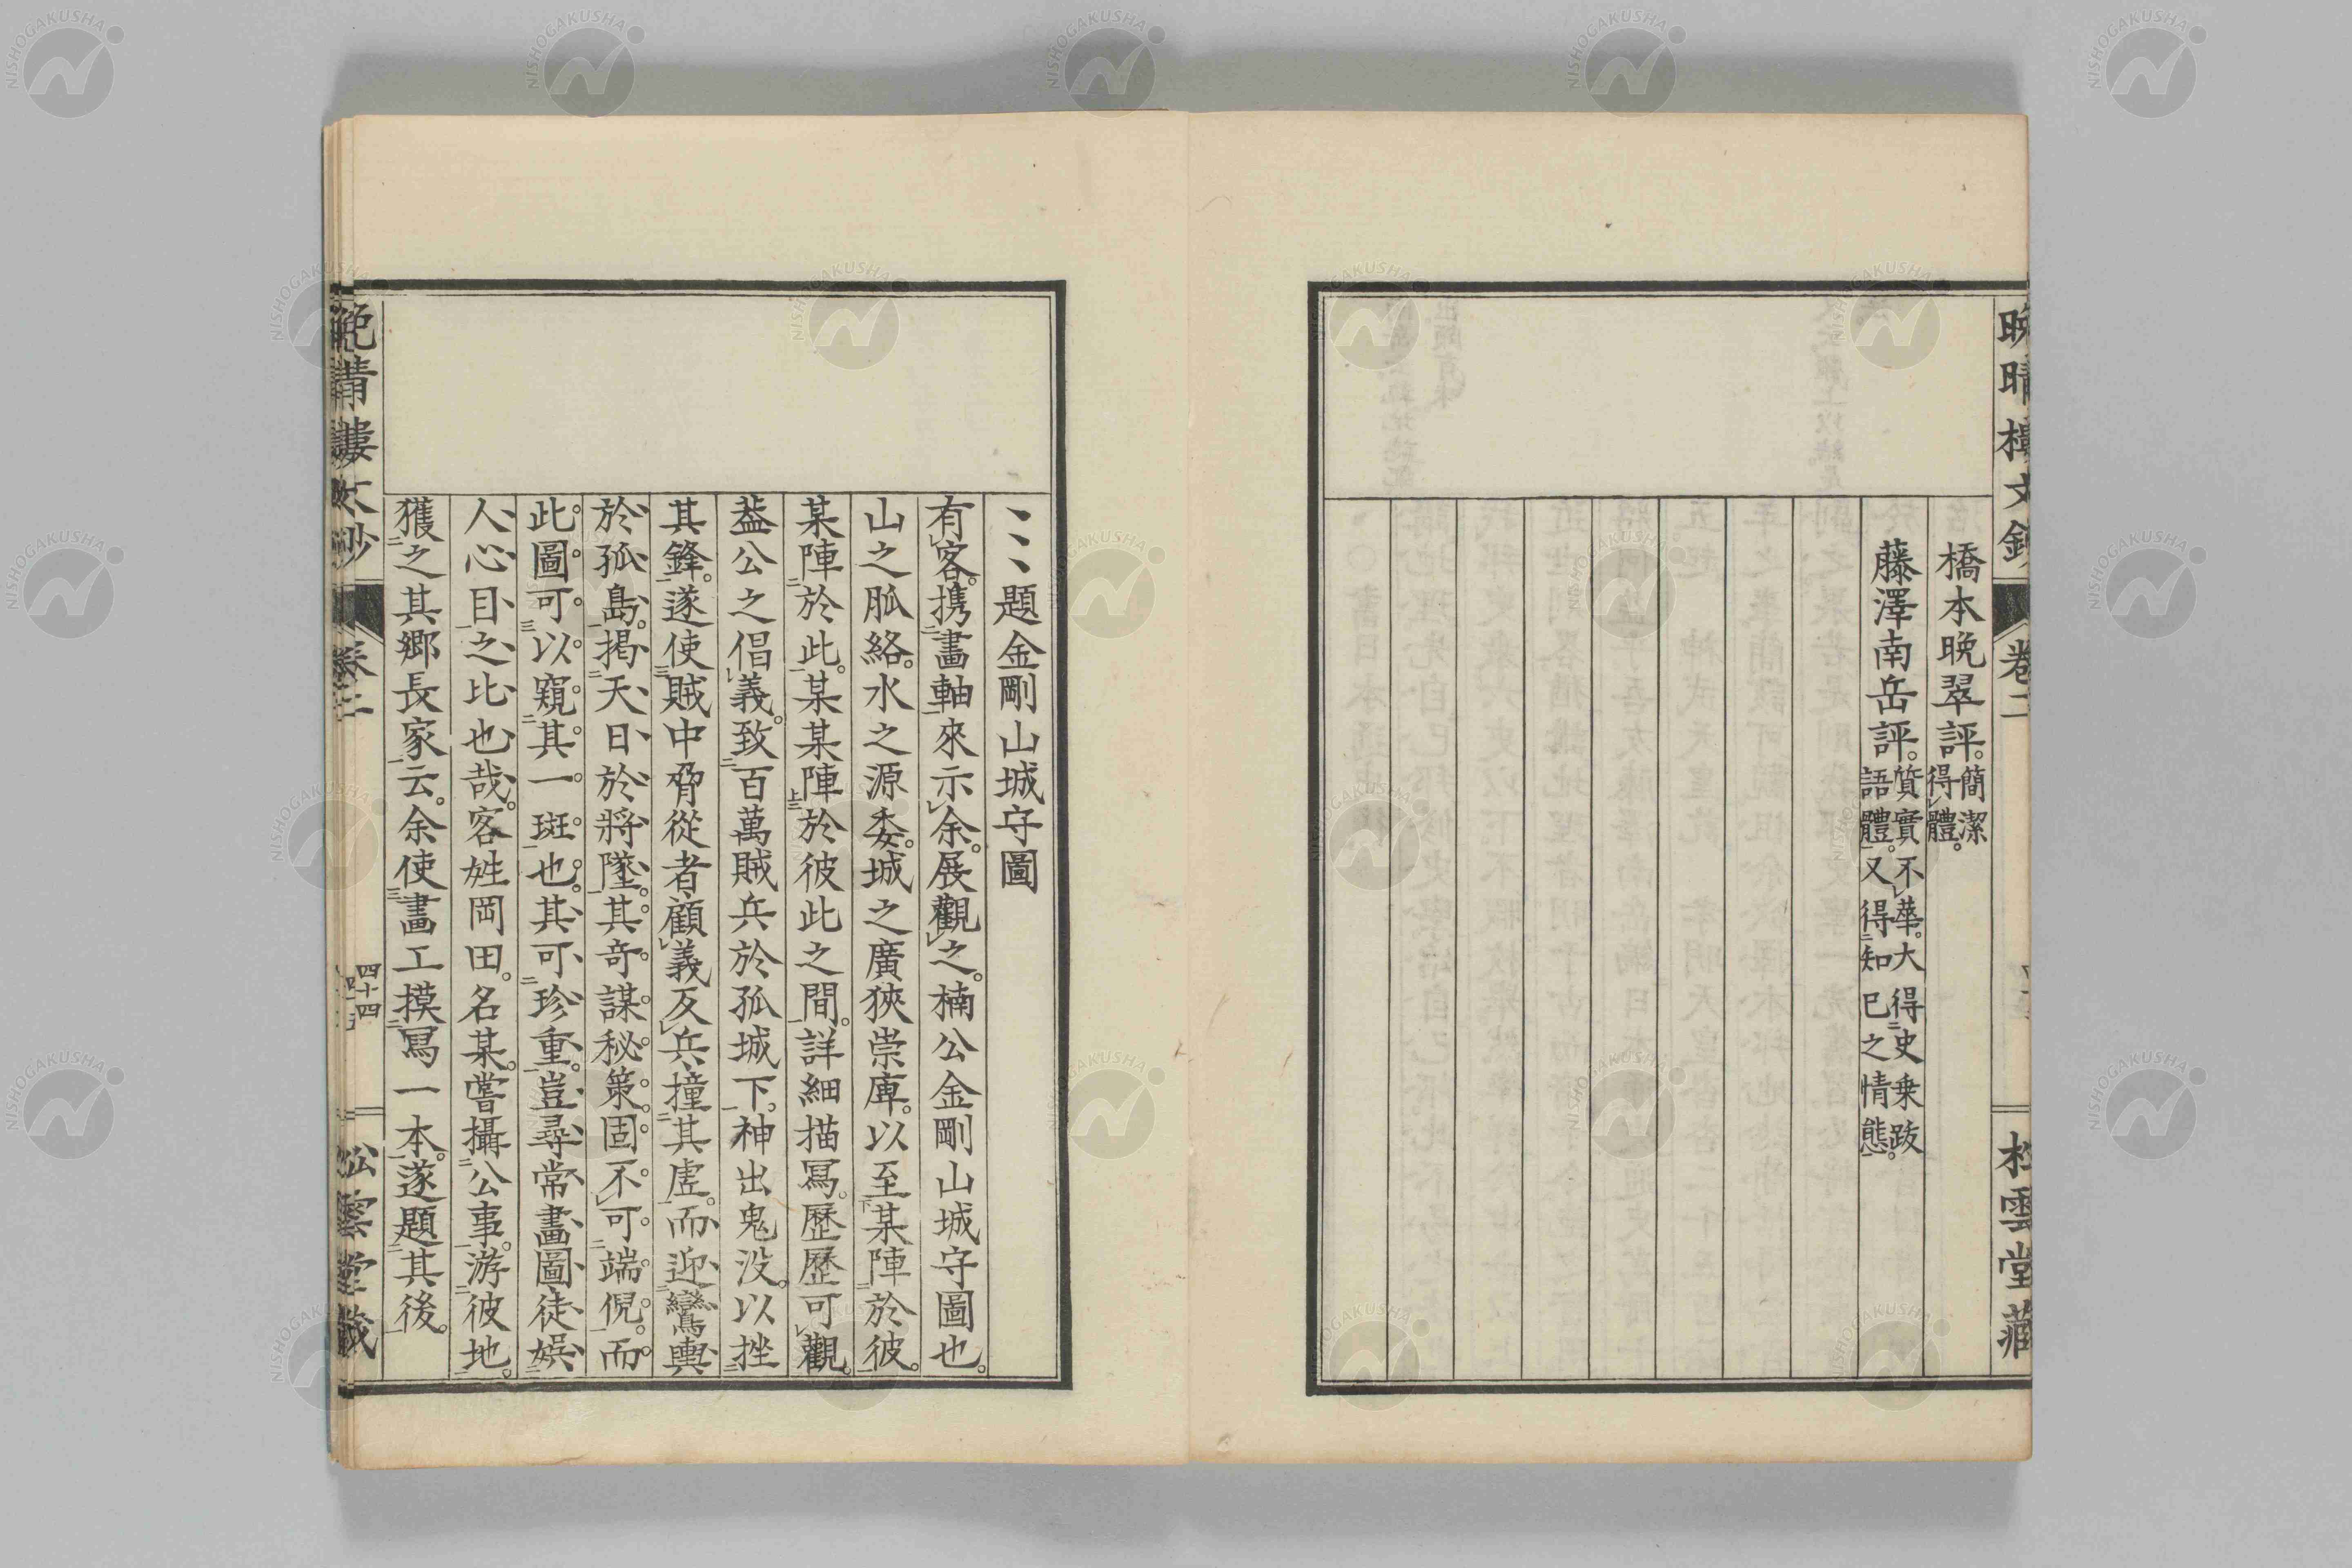 晩晴樓文鈔
卷二
松雲堂藏
橋本晩翠評。簡潔得體。
藤澤南岳評。質實不華。大得史乘跋語體。又得知已之情態。
、、、題金剛山城守圖
有客。携畫軸來示余。展觀之。楠公金剛山城守圖也。
山之脈絡。水之源委。城之廣狹崇庳。以至某陣於彼。
某陣於此。某某陣於彼此之間。詳細描寫。歷歷可觀。
葢公之倡義。致百萬賊兵於孤城下。神出鬼沒。以挫
其鋒。遂使賊中脅從者顧義反兵撞其虛。而迎鸞輿
於孤島。揭天日於將墜。其奇謀秘策。固不可端倪。而
此圖可以窺其一斑也。其可珍重。豈尋常畫圖徒娛
人心目之比也哉。客姓岡田。名某。嘗攝公事。游彼地。
獲之其鄉長家云。余使畫工摸寫一本。遂題其後。
晩晴樓文鈔
卷二
四十四
松雲堂藏
NISHOGAKUSHA